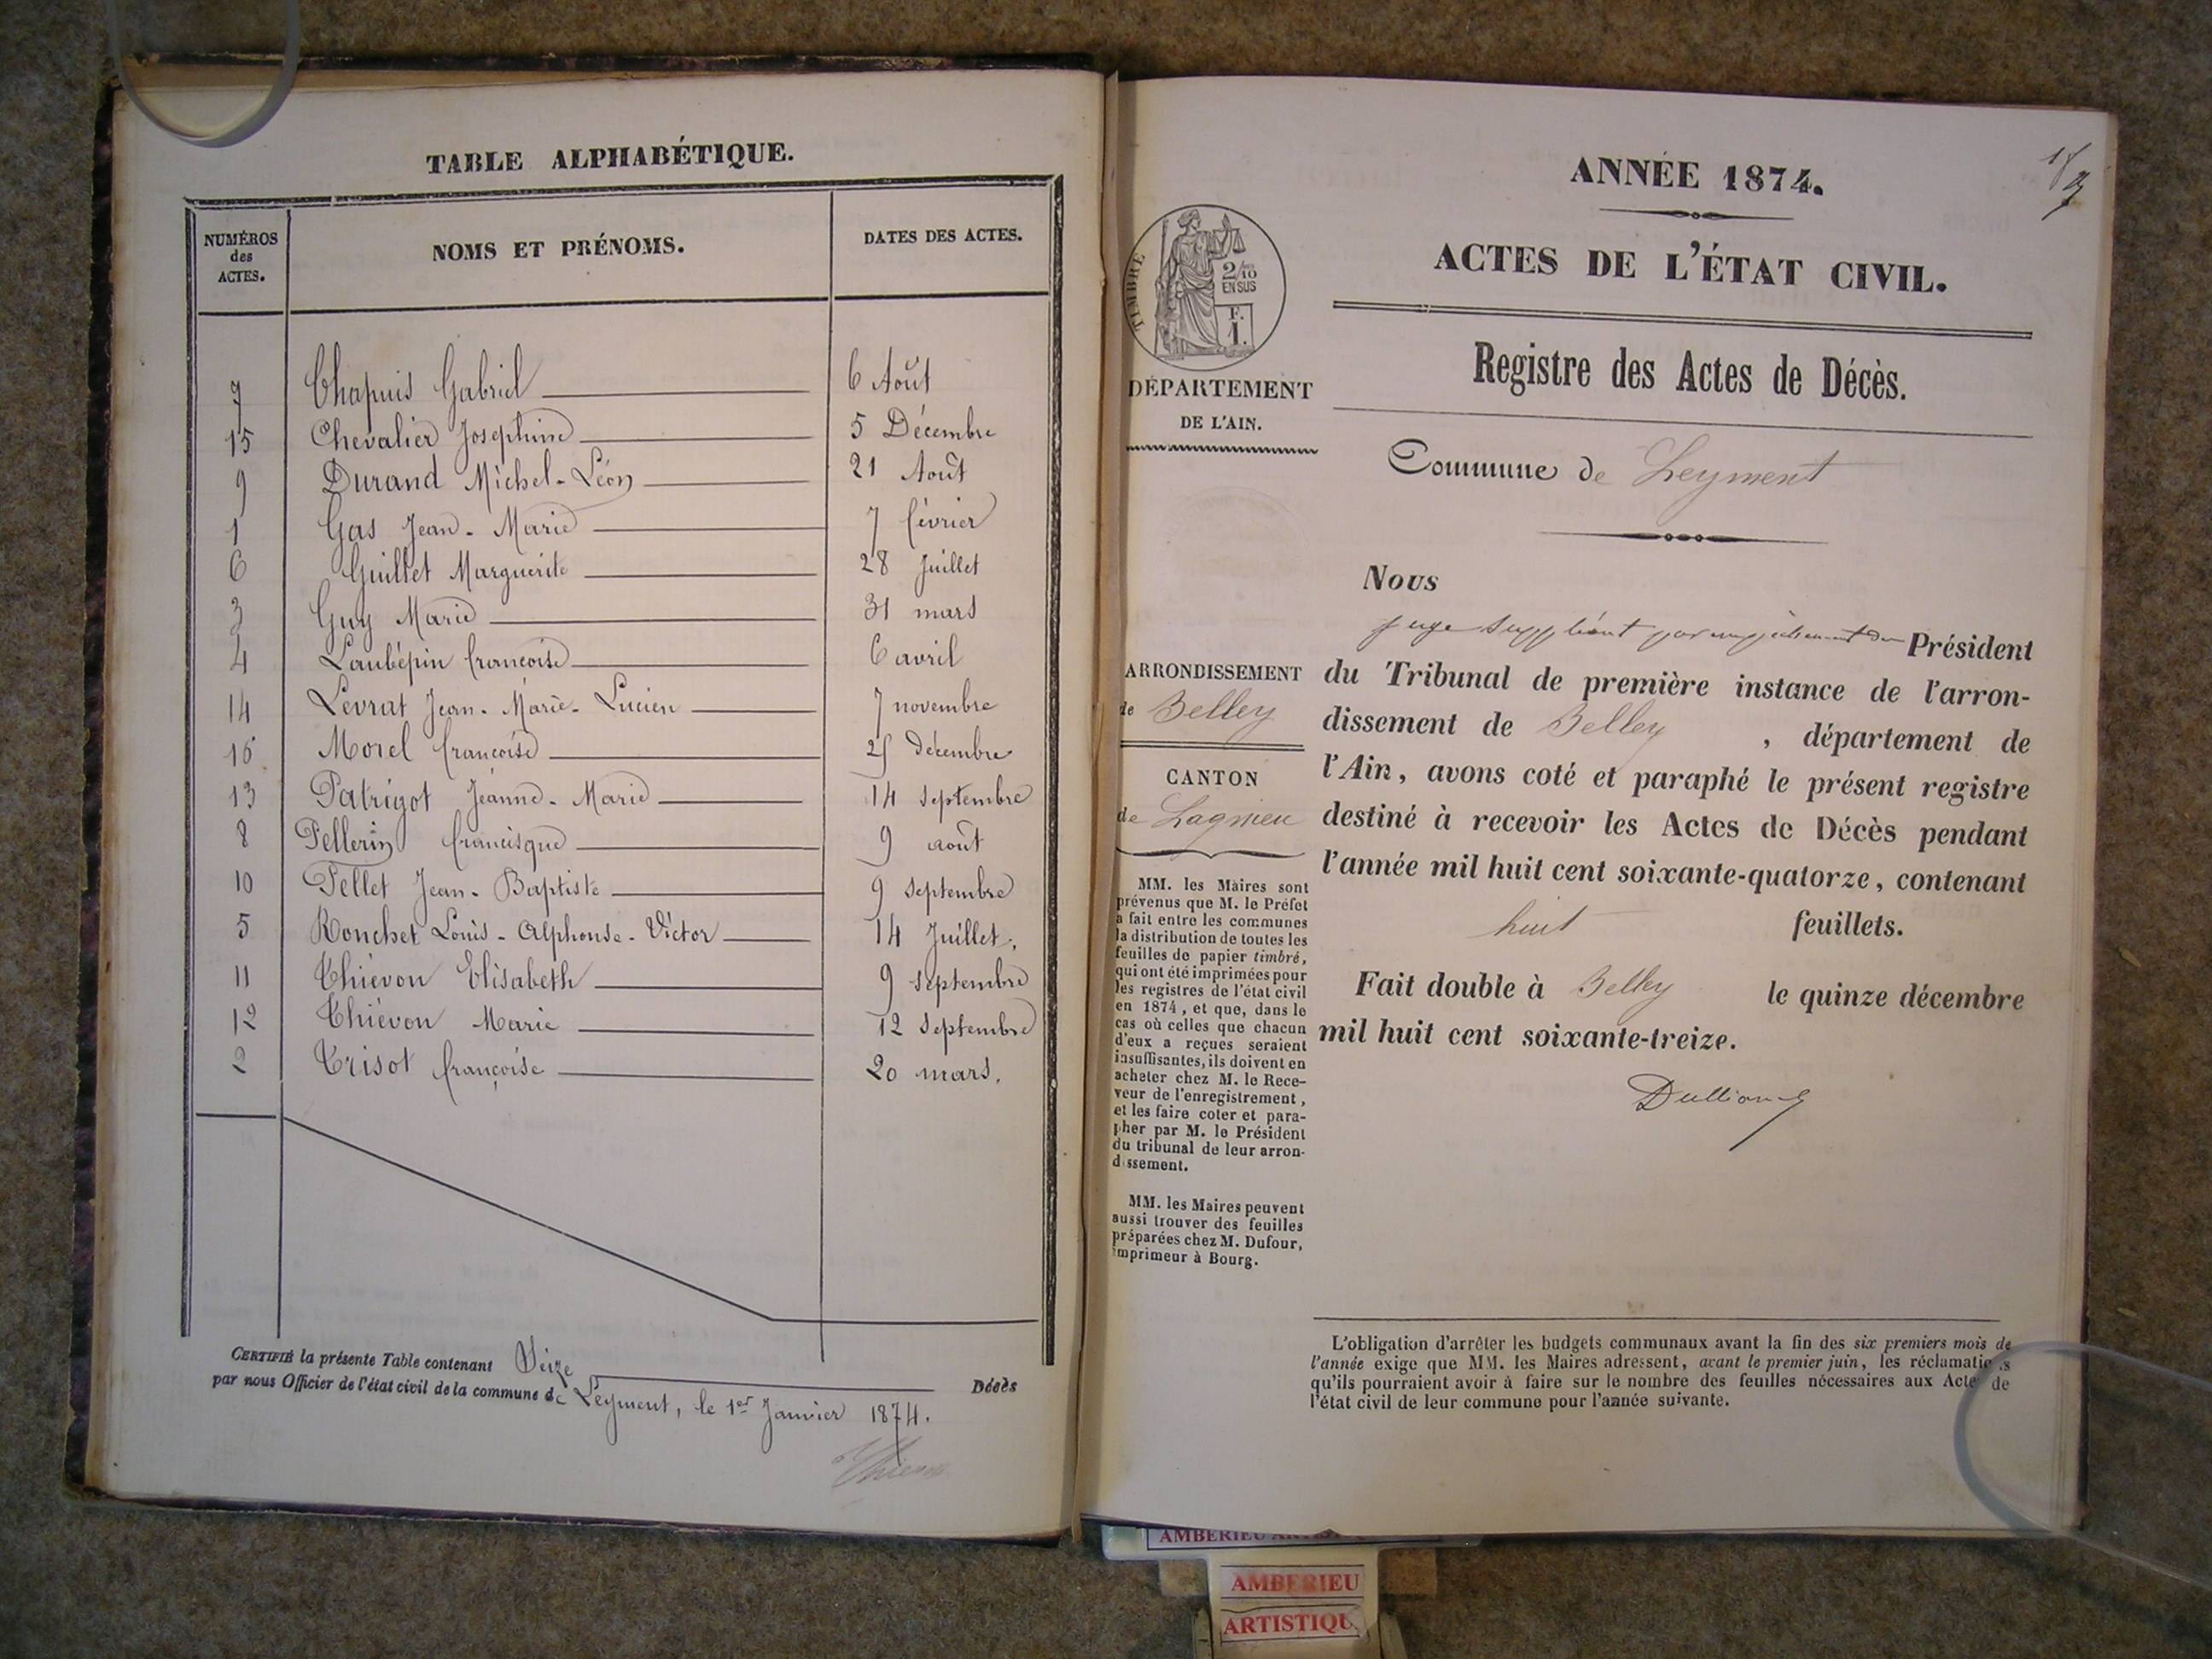 TABLE ALPHABÉTIQUE.
NUMÉROS des ACTES. NOMS ET PRÉNOMS. DATES DES ACTES.
7 Chapuis Gabriel 6 Août
15 Chevalier Joséphine 5 Décembre
9 Durand Michel-Léon 21 Août
1 Gas Jean-Marie 7 février
6 Guillet Marguerite 28 Juillet
3 Guy Marie 31 mars
4 Laubépin françoise 6 avril
14 Levrat Jean-Marie-Lucien 7 novembre
16 Morel françoise 25 décembre
13 Patrigot Jeanne-Marie 14 septembre
8 Pellerin francisque 9 août
10 Pellet Jean-Baptiste 9 septembre
5 Ronchet Louis-Alphonse-Victor 14 Juillet.
11 Thiévon Elisabeth 9 septembre
12 Thiévon Marie 12 septembre
2 Trisot françoise 20 mars.
CERTIFIÉ la présente Table contenant Seize Décès
par nous Officier de l'état civil de la commune de Leyment, le 1er Janvier 1874.
ANNÉE 1874.
ACTES DE L'ÉTAT CIVIL.
TIMBRE
2/10
EN SUS
F.
1.
DÉPARTEMENT
DE L'AIN.
Registre des Actes de Décès.
Commune de Leyment
ARRONDISSEMENT
de Belley
CANTON
de Lagnieu
MM. les Maires sont
prévenus que M. le Préfet
a fait entre les communes
la distribution de toutes les
feuilles de papier timbré,
qui ont été imprimées pour
les registres de l'état civil
en 1874, et que, dans le
cas où celles que chacun
d'eux a reçues seraient
insuffisantes, ils doivent en
acheter chez M. le Rece-
veur de l'enregistrement,
et les faire coter et para-
pher par M. le Président
du tribunal de leur arron-
dissement.
MM. les Maires peuvent
aussi trouver des feuilles
préparées chez M. Dufour,
imprimeur à Bourg.
Nous
juge suppléant par empêchement du Président
du Tribunal de première instance de l'arron-
dissement de Belley, département de
l'Ain, avons coté et paraphé le présent registre
destiné à recevoir les Actes de Décès pendant
l'année mil huit cent soixante-quatorze, contenant
huit feuillets.
Fait double à Belley le quinze décembre
mil huit cent soixante-treize.
L'obligation d'arrêter les budgets communaux avant la fin des six premiers mois de
l'année exige que MM. les Maires adressent, avant le premier juin, les réclamations
qu'ils pourraient avoir à faire sur le nombre des feuilles nécessaires aux Actes de
l'état civil de leur commune pour l'année suivante.
AMBERIEU
AMBERIEU
ARTISTIQU